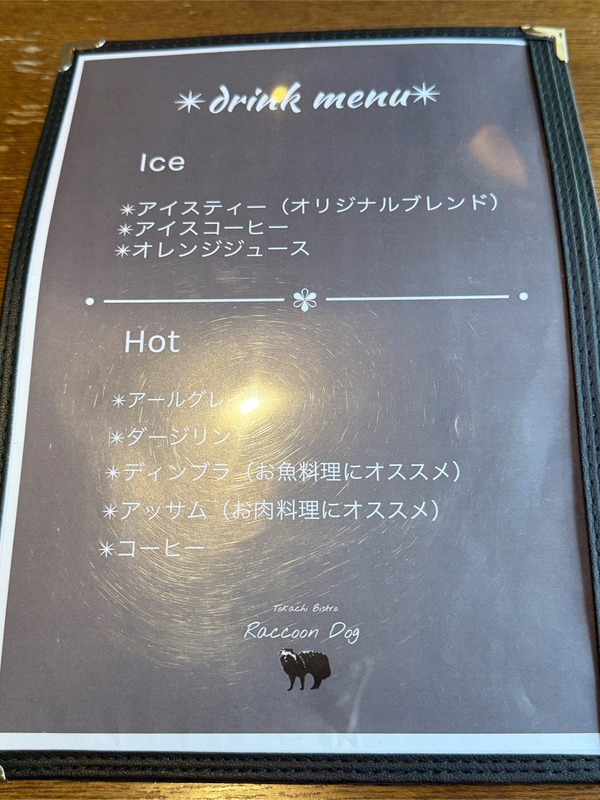 ✴drink menu✴
Ice
✴アイスティー（オリジナルブレンド）
✴アイスコーヒー
✴オレンジジュース
Hot
✴アールグレイ
✴ダージリン
✴ディンブラ（お魚料理にオススメ）
✴アッサム（お肉料理にオススメ）
✴コーヒー
Tokachi Bistro
Raccoon Dog